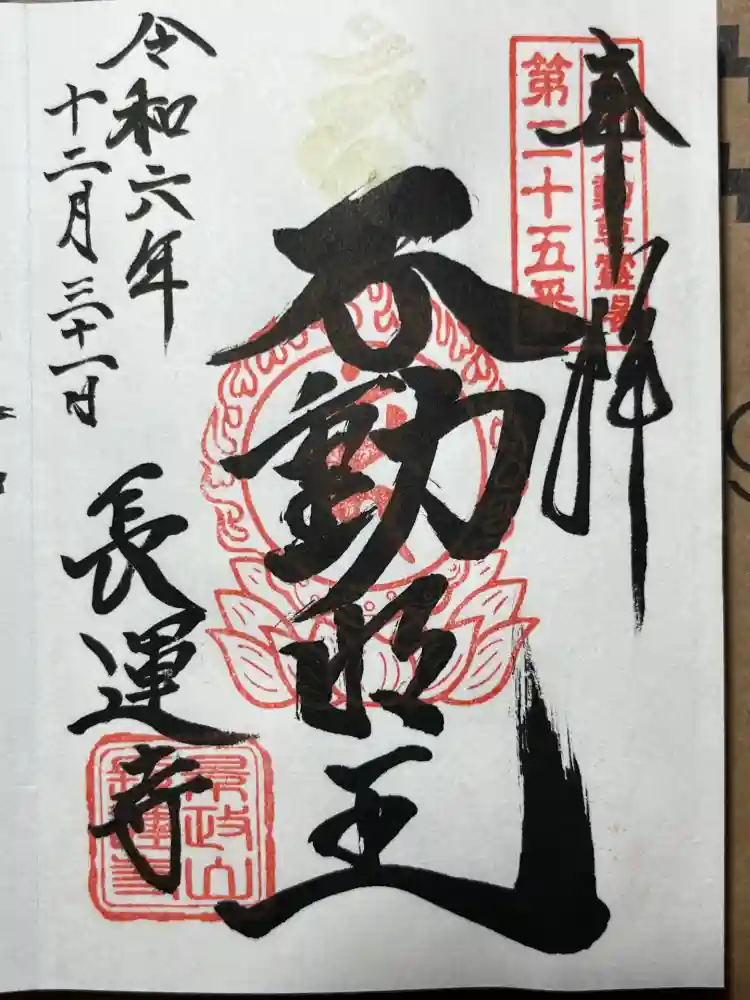 奉拝
第二十五番
不動尊霊場
不動明王
令和六年
十二月三十一日
長運寺